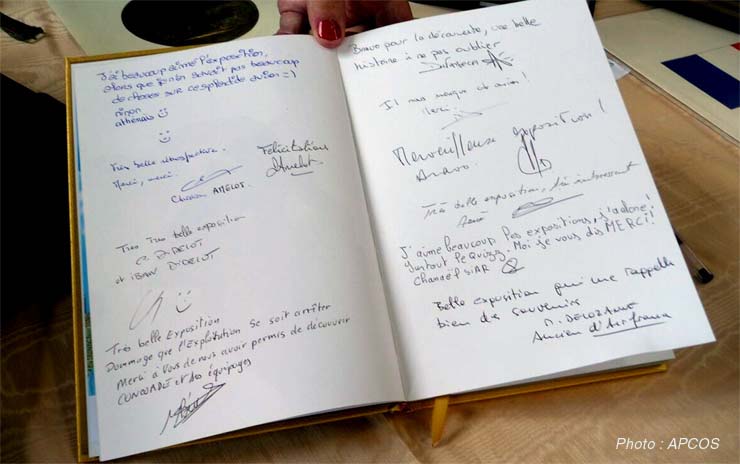 J'ai beaucoup aimé l'exposition,
alors que je n'en savait pas beaucoup
de choses sur ce splendide avion =)
ninon
athénaïs
Très belle rétrospective.
Merci, merci.
Christian AMELOT.
Félicitations
Amelot
Très Très belle exposition
C. DIDELOT
et iBAN DIDELOT
Très belle Exposition
Dommage que l'Exploitation se soit arrêter
Merci à Vous de nous avoir permis de découvrir
CONCORDE et des équipages
Bravo pour la découverte, une belle
histoire à ne pas oublier
Il nous manque cet avion !
Merci
Merveilleuse exposition !
Bravo.
Très belle exposition, très intéressant
J'aime beaucoup les expositions, j'adore!
surtout le Quizz. Moi je vous dis MERCI!
Belle exposition qui me rappelle
bien des souvenirs
Ancien d'Air france
Photo : APCOS